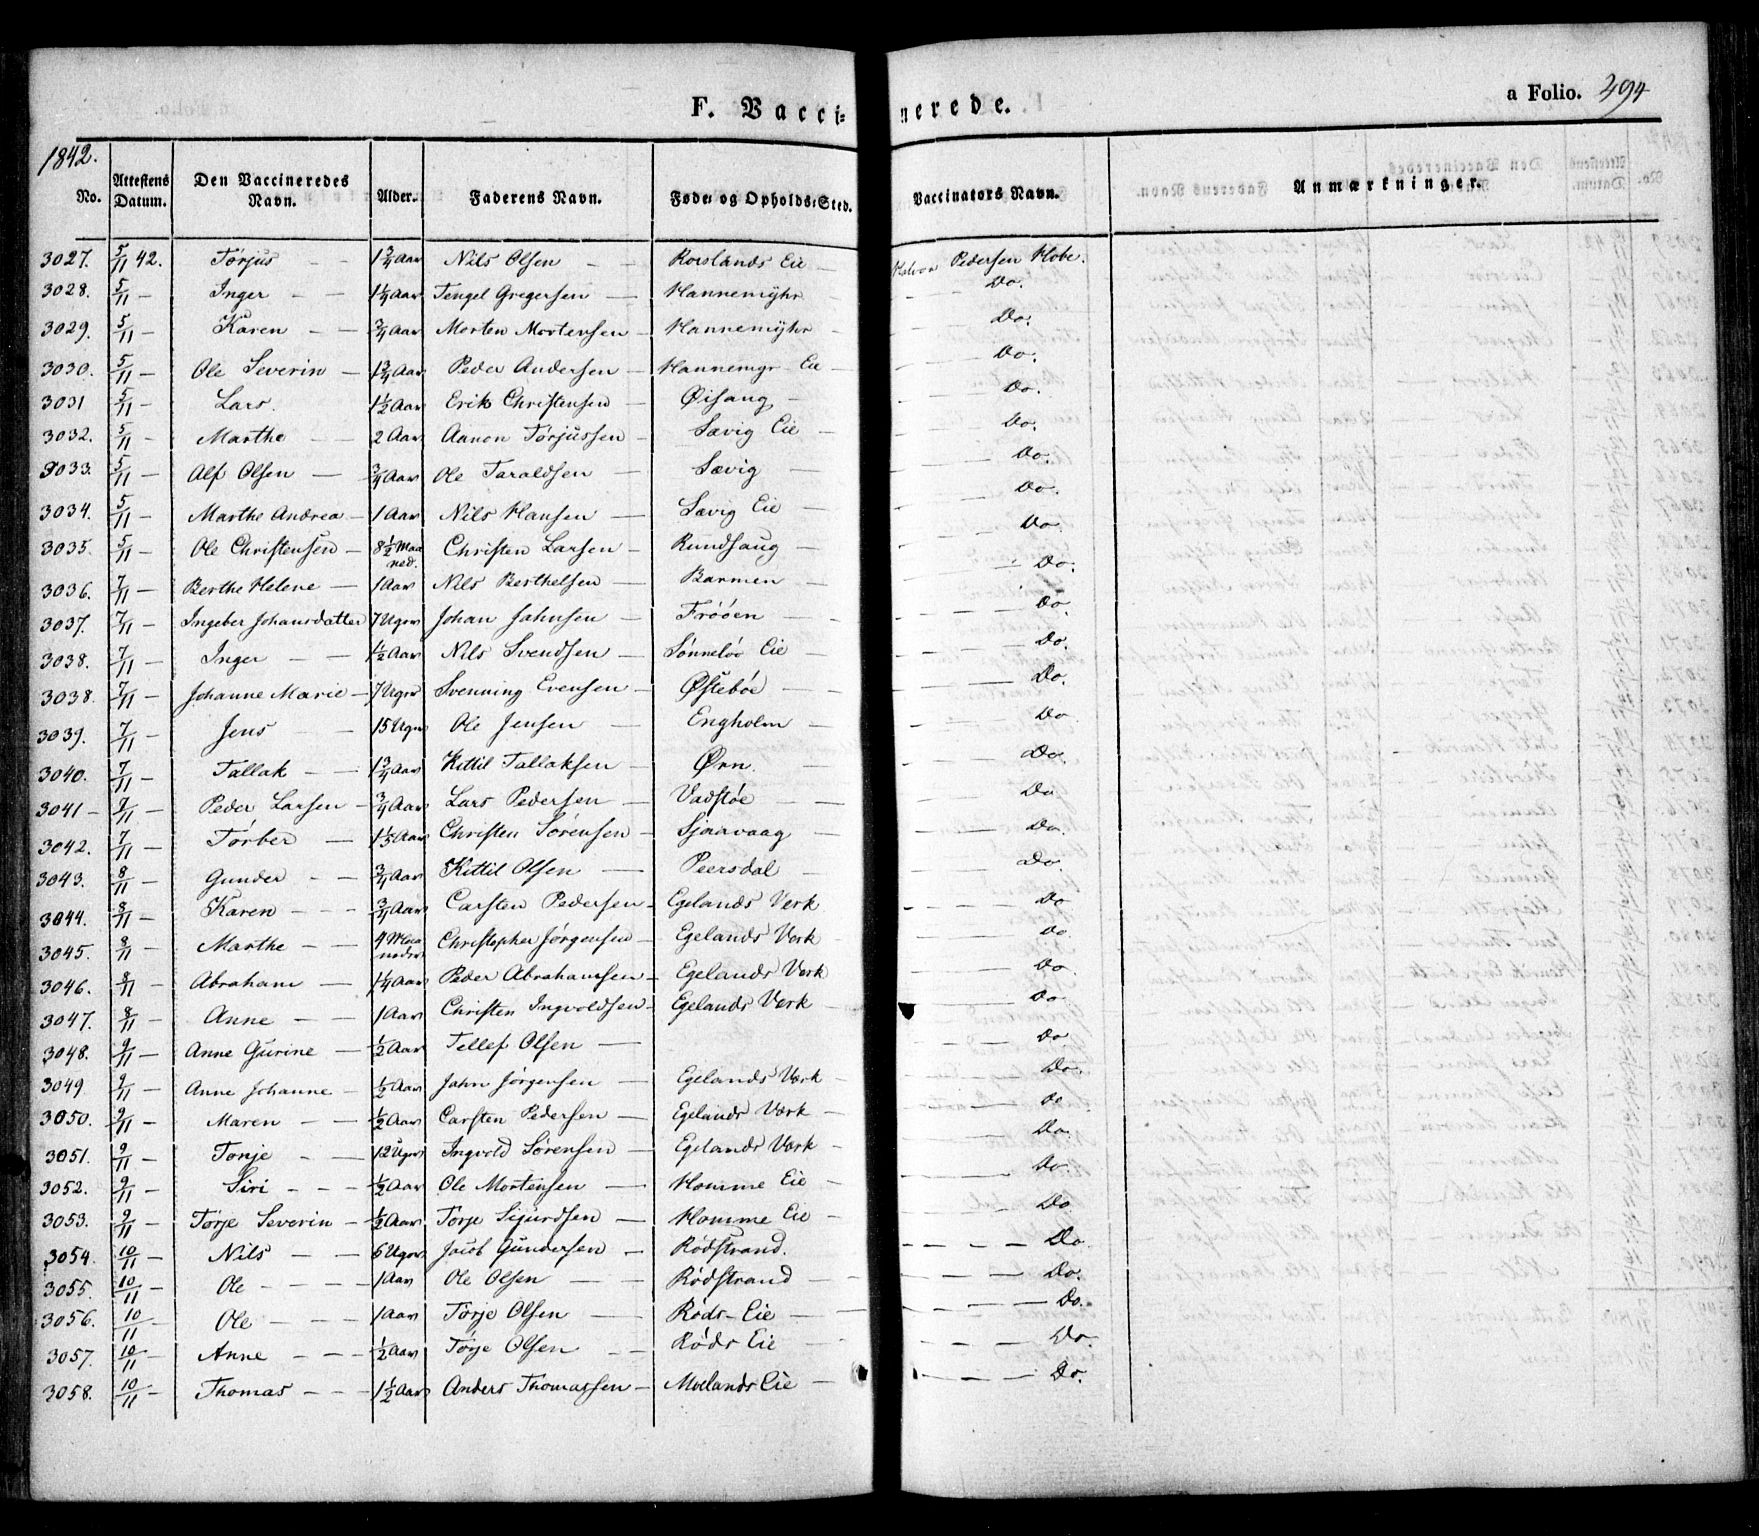 F. Vaccinerede.
a Folio. 394
1842.
No. Attestens Datum. Den Vaccineredes Navn. Alder. Faderens Navn. Føde- og Opholds-Sted. Vaccinators Navn. Anmærkninger.
3027. 5/11 42. Tørjus — — 1 3/4 Aar Nils Olsen — — Roeslands Eie — Halvor Pedersen Hobe.
3028. 5/11 — Inger — — 1 1/4 Aar Tengel Gregersen — Hannemyhr — Do.
3029. 5/11 — Karen — — 3/4 Aar Morten Mortensen — Hannemyhr — Do.
3030. 5/11 — Ole Severin — 1 3/4 Aar Peder Andersen — Hannemyr Eie — Do.
3031 5/11 — Lars. 1 1/2 Aar Erik Christensen — Øisang — Do.
3032. 5/11 — Marthe — 2 Aar Aanon Tørjussen — Sævig Eie — Do.
3033. 5/11 — Alf Olsen — 3/4 Aar Ole Taraldsen — Sævig — Do.
3034. 5/11 — Marthe Andrea — 1 Aar Nils Hansen — Sævig Eie — Do.
3035. 5/11 — Ole Christensen — 8 1/2 Maaned. Christen Larsen — Rundsaug — Do.
3036. 7/11 — Berthe Helene — 1 Aar Nils Berthelsen — Barmen — Do.
3037. 7/11 — Ingeber Johansdatter 7 Uger Johan Jahnsen — Frööen — Do.
3038. 7/11 — Inger — — 1/2 Aar Nils Svendsen — Sønneløv Eie — Do.
3038. 7/11 — Johanne Marie — 7 Uger Svenning Evensen — Østebøe — Do.
3039. 7/11 — Jens — 15 Uger Ole Jensen — Engholm — Do
3040. 7/11 — Tallak — — 1 3/4 Aar Kittil Tallaksen — Ørn. — Do.
3041 — 7/11 — Peder Larsen — 3/4 Aar Lars Pedersen — Vadstøe — Do
3042. 7/11 — Tørber — 1 1/5 Aar Christen Sörensen — Sjaavaag — Do.
3043. 8/11 — Gunder — — 3/4 Aar Kittil Olsen — Peersdal — Do
3044. 8/11 — Karen — — — 3/4 Aar Carsten Pedersen — Egelands Verk Do
3045. 8/11 — Marthe — — 4 Maaneder Christopher Jørgensen — Egelands Verk — Do.
3046. 8/11 — Abraham — 1 1/4 Aar Peder Abrahamsen — Egelands Verk — Do.
3047. 8/11 — Anne — — 1 Aar Christen Ingvoldsen — Egelands Verk — Do
3048. 9/11 — Anne Gurine — 1/2 Aar Tellef Olsen — — Do.
3049. 9/11 — Anne Johanne — 1/2 Aar Jahn Jørgensen — Egelands Værk — Do.
3050. 9/11 — Maren — — 1/2 Aar Carsten Pedersen — Egelands Værk — Do
3051. 9/11 — Tonje — — 12 Uger Ingvold Sørensen — Egelands Værk — Do.
3052. 9/11 — Siri — — — 1/2 Aar Ole Mortensen — Homme Eie — Do.
3053. 9/11 — Tørje Severin — 1/2 Aar Tørje Sigurdsen — Homme Eie — Do
3054. 10/11 — Nils — — 6 Uger Jacob Gundersen — Rødstrand. Do.
3055. 10/11 — Ole — — — — 1 Aar Ole Olsen — — Rødstrand — Do.
3056. 10/11 Ole — — — 1 Aar Tørje Olsen — Røds Eie — Do.
3057. 10/11 — Anne — — — 1/2 Aar Tørje Olsen — — Røds Eie — Do.
3058. 10/11 — Thomas — — — 1 1/2 Aar Anders Thomassen — Moelands Eie — Do.